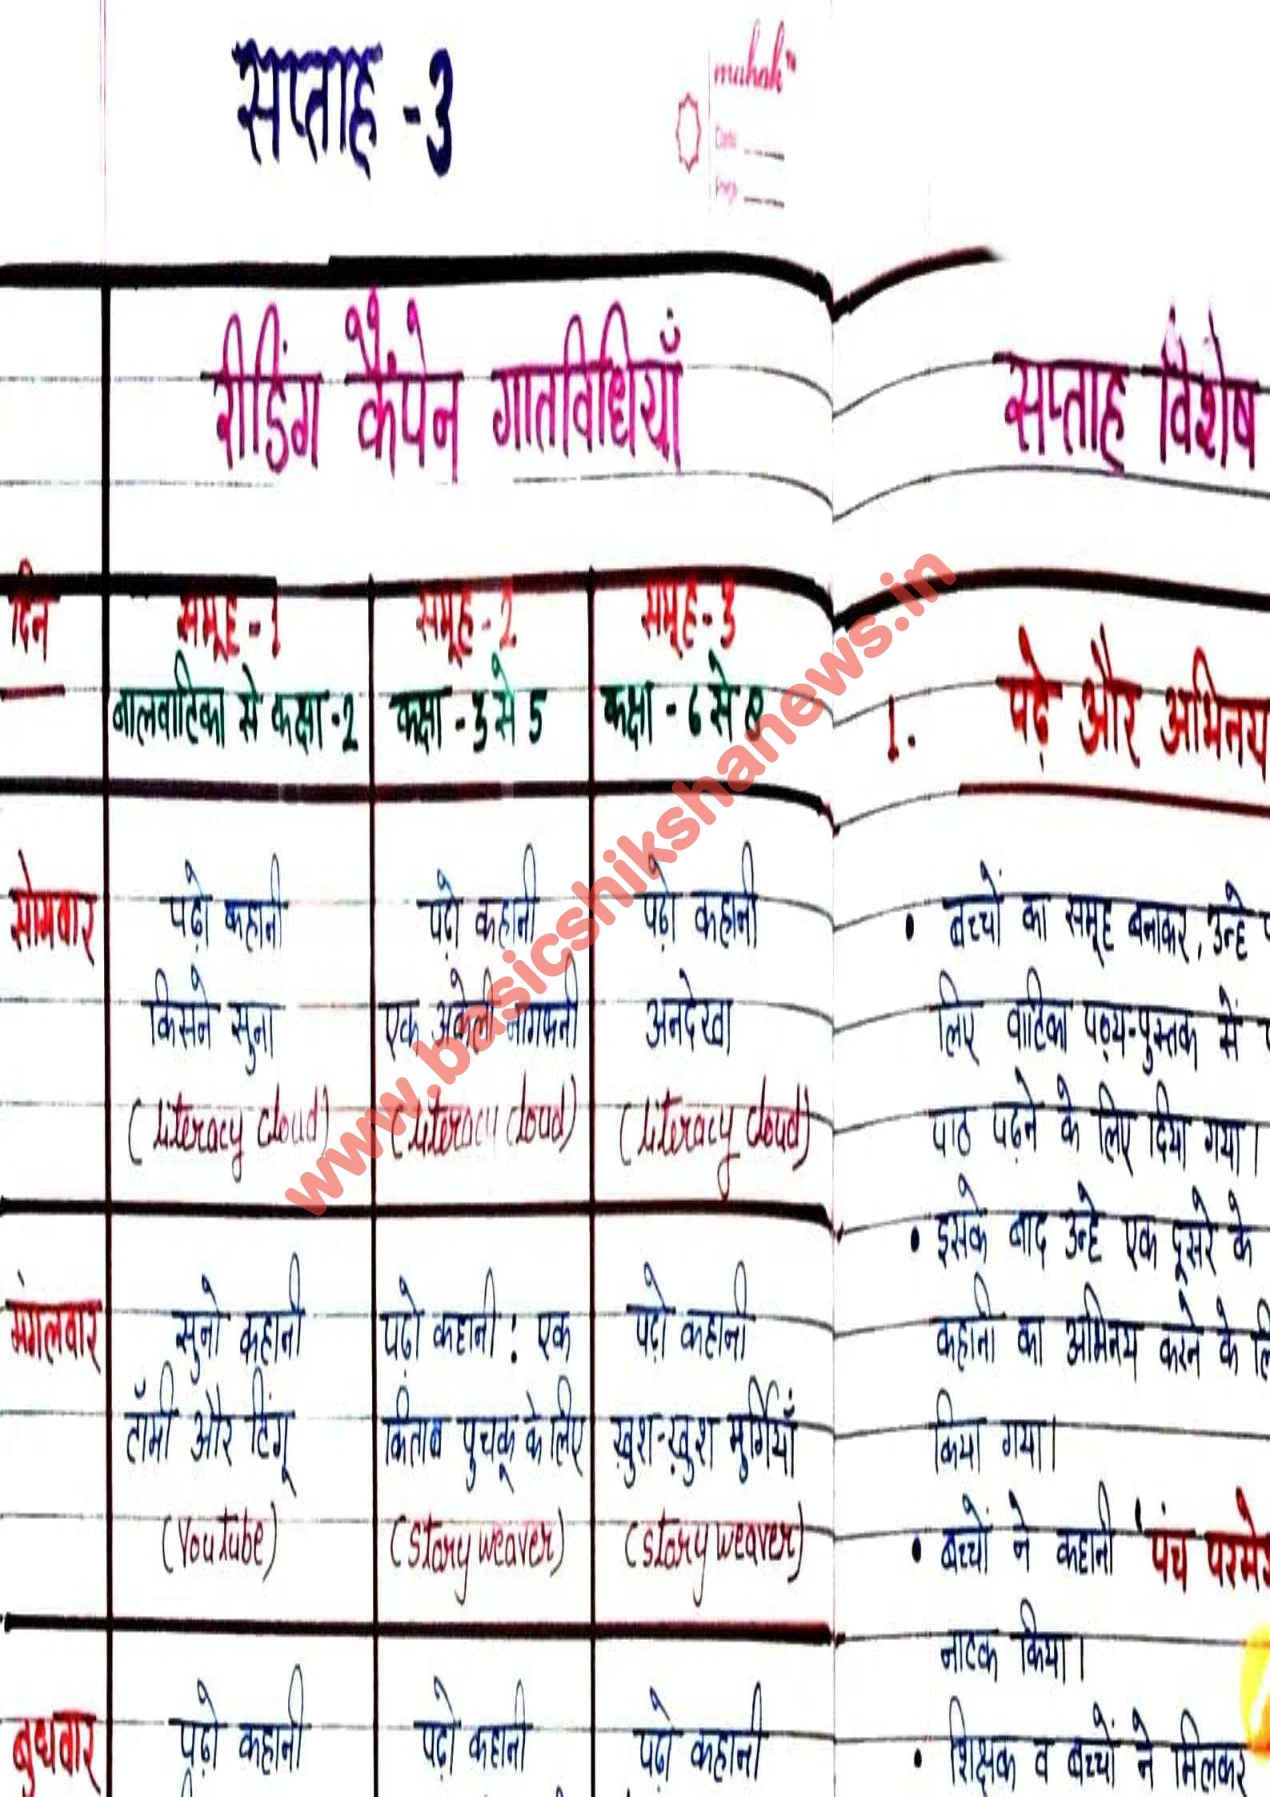 सप्ताह -3
mahak
Date
Page
रीडिंग कैंपेन गतिविधियाँ
दिन
समूह -1
समूह -2
समूह -3
बालवाटिका से कक्षा -2
कक्षा - 3 से 5
कक्षा - 6 से 8
सोमवार
पढ़ो कहानी
किसने सुना
(literacy cloud)
पढ़ो कहानी
एक अकेली नागफनी
(literacy cloud)
पढ़ो कहानी
अनदेखा
(literacy cloud)
मंगलवार
सुनो कहानी
टॉमी और टिंगू
(YouTube)
पढ़ो कहानी : एक
किताब पुचकू के लिए
(story weaver)
पढ़ो कहानी
ख़ुश-ख़ुश मुर्गियाँ
(story weaver)
बुधवार
पढ़ो कहानी
पढ़ो कहानी
पढ़ो कहानी
सप्ताह विशेष
1. पढ़े और अभिनय
• बच्चों का समूह बनाकर, उन्हे
लिए वाटिका पठ्य-पुस्तक से
पाठ पढ़ने के लिए दिया गया।
• इसके बाद उन्हे एक दूसरे के
कहानी का अभिनय करने के
किया गया।
• बच्चों ने कहानी 'पंच
नाटक किया।
• शिक्षक व बच्चों ने मिलकर
www.basicshikshanews.in